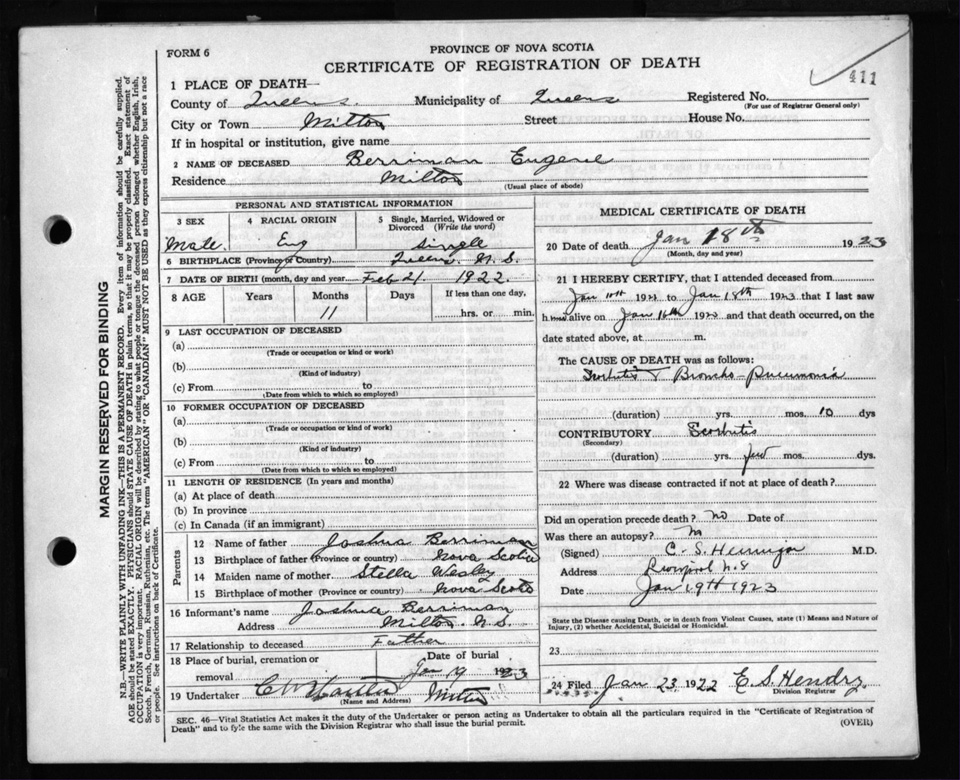 411
FORM 6
PROVINCE OF NOVA SCOTIA
CERTIFICATE OF REGISTRATION OF DEATH
1 PLACE OF DEATH—
County of Queens. Municipality of Queens Registered No.
(For use of Registrar General only)
City or Town Milton Street House No.
If in hospital or institution, give name
2 NAME OF DECEASED Berriman Eugene
Residence Milton
(Usual place of abode)
PERSONAL AND STATISTICAL INFORMATION
3 SEX 4 RACIAL ORIGIN 5 Single, Married, Widowed or Divorced (Write the word)
Male. Eng single
6 BIRTHPLACE (Province or Country) Queens. N. S.
7 DATE OF BIRTH (month, day and year) Feb 21. 1922.
8 AGE Years Months Days If less than one day,
11 hrs. or min.
9 LAST OCCUPATION OF DECEASED
(a)
(Trade or occupation or kind or work)
(b)
(Kind of industry)
(c) From to
(Date from which to which so employed)
10 FORMER OCCUPATION OF DECEASED
(a)
(Trade or occupation or kind of work)
(b)
(Kind of industry)
(c) From to
(Date from which to which so employed)
11 LENGTH OF RESIDENCE (In years and months)
(a) At place of death
(b) In province
(c) In Canada (if an immigrant)
Parents
12 Name of father Joshua Berriman
13 Birthplace of father (Province or country) Nova Scotia
14 Maiden name of mother Stella Wesley
15 Birthplace of mother (Province or country) Nova Scotia
16 Informant's name Joshua Berriman
Address Milton N.S.
17 Relationship to deceased Father
18 Place of burial, cremation or removal Date of burial
Jan 19 1923
19 Undertaker Milton
(Name and Address)
MEDICAL CERTIFICATE OF DEATH
20 Date of death Jan 18th 1923
(Month, day and year)
21 I HEREBY CERTIFY, that I attended deceased from
Jan to Jan 18th 1923 that I last saw
h alive on Jan 16th and that death occurred, on
date stated above, at m.
The CAUSE OF DEATH was as follows:
Broncho-Pneumonia
(duration) yrs. mos. 10 dys
CONTRIBUTORY Scorbutis
(Secondary)
(duration) yrs. few mos. dys.
22 Where was disease contracted if not at place of death?
Did an operation precede death? No Date of
Was there an autopsy? No
(Signed) C. S. M.D.
Address Liverpool N.S
Date Jan 19th 1923
State the Disease causing Death, or in death from Violent Causes, state (1) Means and Nature of
Injury, (2) whether Accidental, Suicidal or Homicidal.
23
24 Filed Jan 23 1922 E. S. Hendry
Division Registrar
SEC. 46—Vital Statistics Act makes it the duty of the Undertaker or person acting as Undertaker to obtain all the particulars required in the "Certificate of Registration of
Death" and to fyle the same with the Division Registrar who shall issue the burial permit.
(OVER)
MARGIN RESERVED FOR BINDING
N.B.—WRITE PLAINLY WITH UNFADING INK—THIS IS A PERMANENT RECORD. Every item of information should be carefully supplied.
AGE should be stated EXACTLY. PHYSICIANS should STATE CAUSE OF DEATH in plain terms, so that it may be properly classified. Exact statement of
OCCUPATION is very important. RACIAL ORIGIN will be described by stating to what people or tongue the deceased person belonged whether English, Irish,
Scotch, French, German, Russian, Ruthenian, etc. The terms "AMERICAN" OR "CANADIAN" MUST NOT BE USED as they express citizenship but not a race
or people. See instructions on back of Certificate.